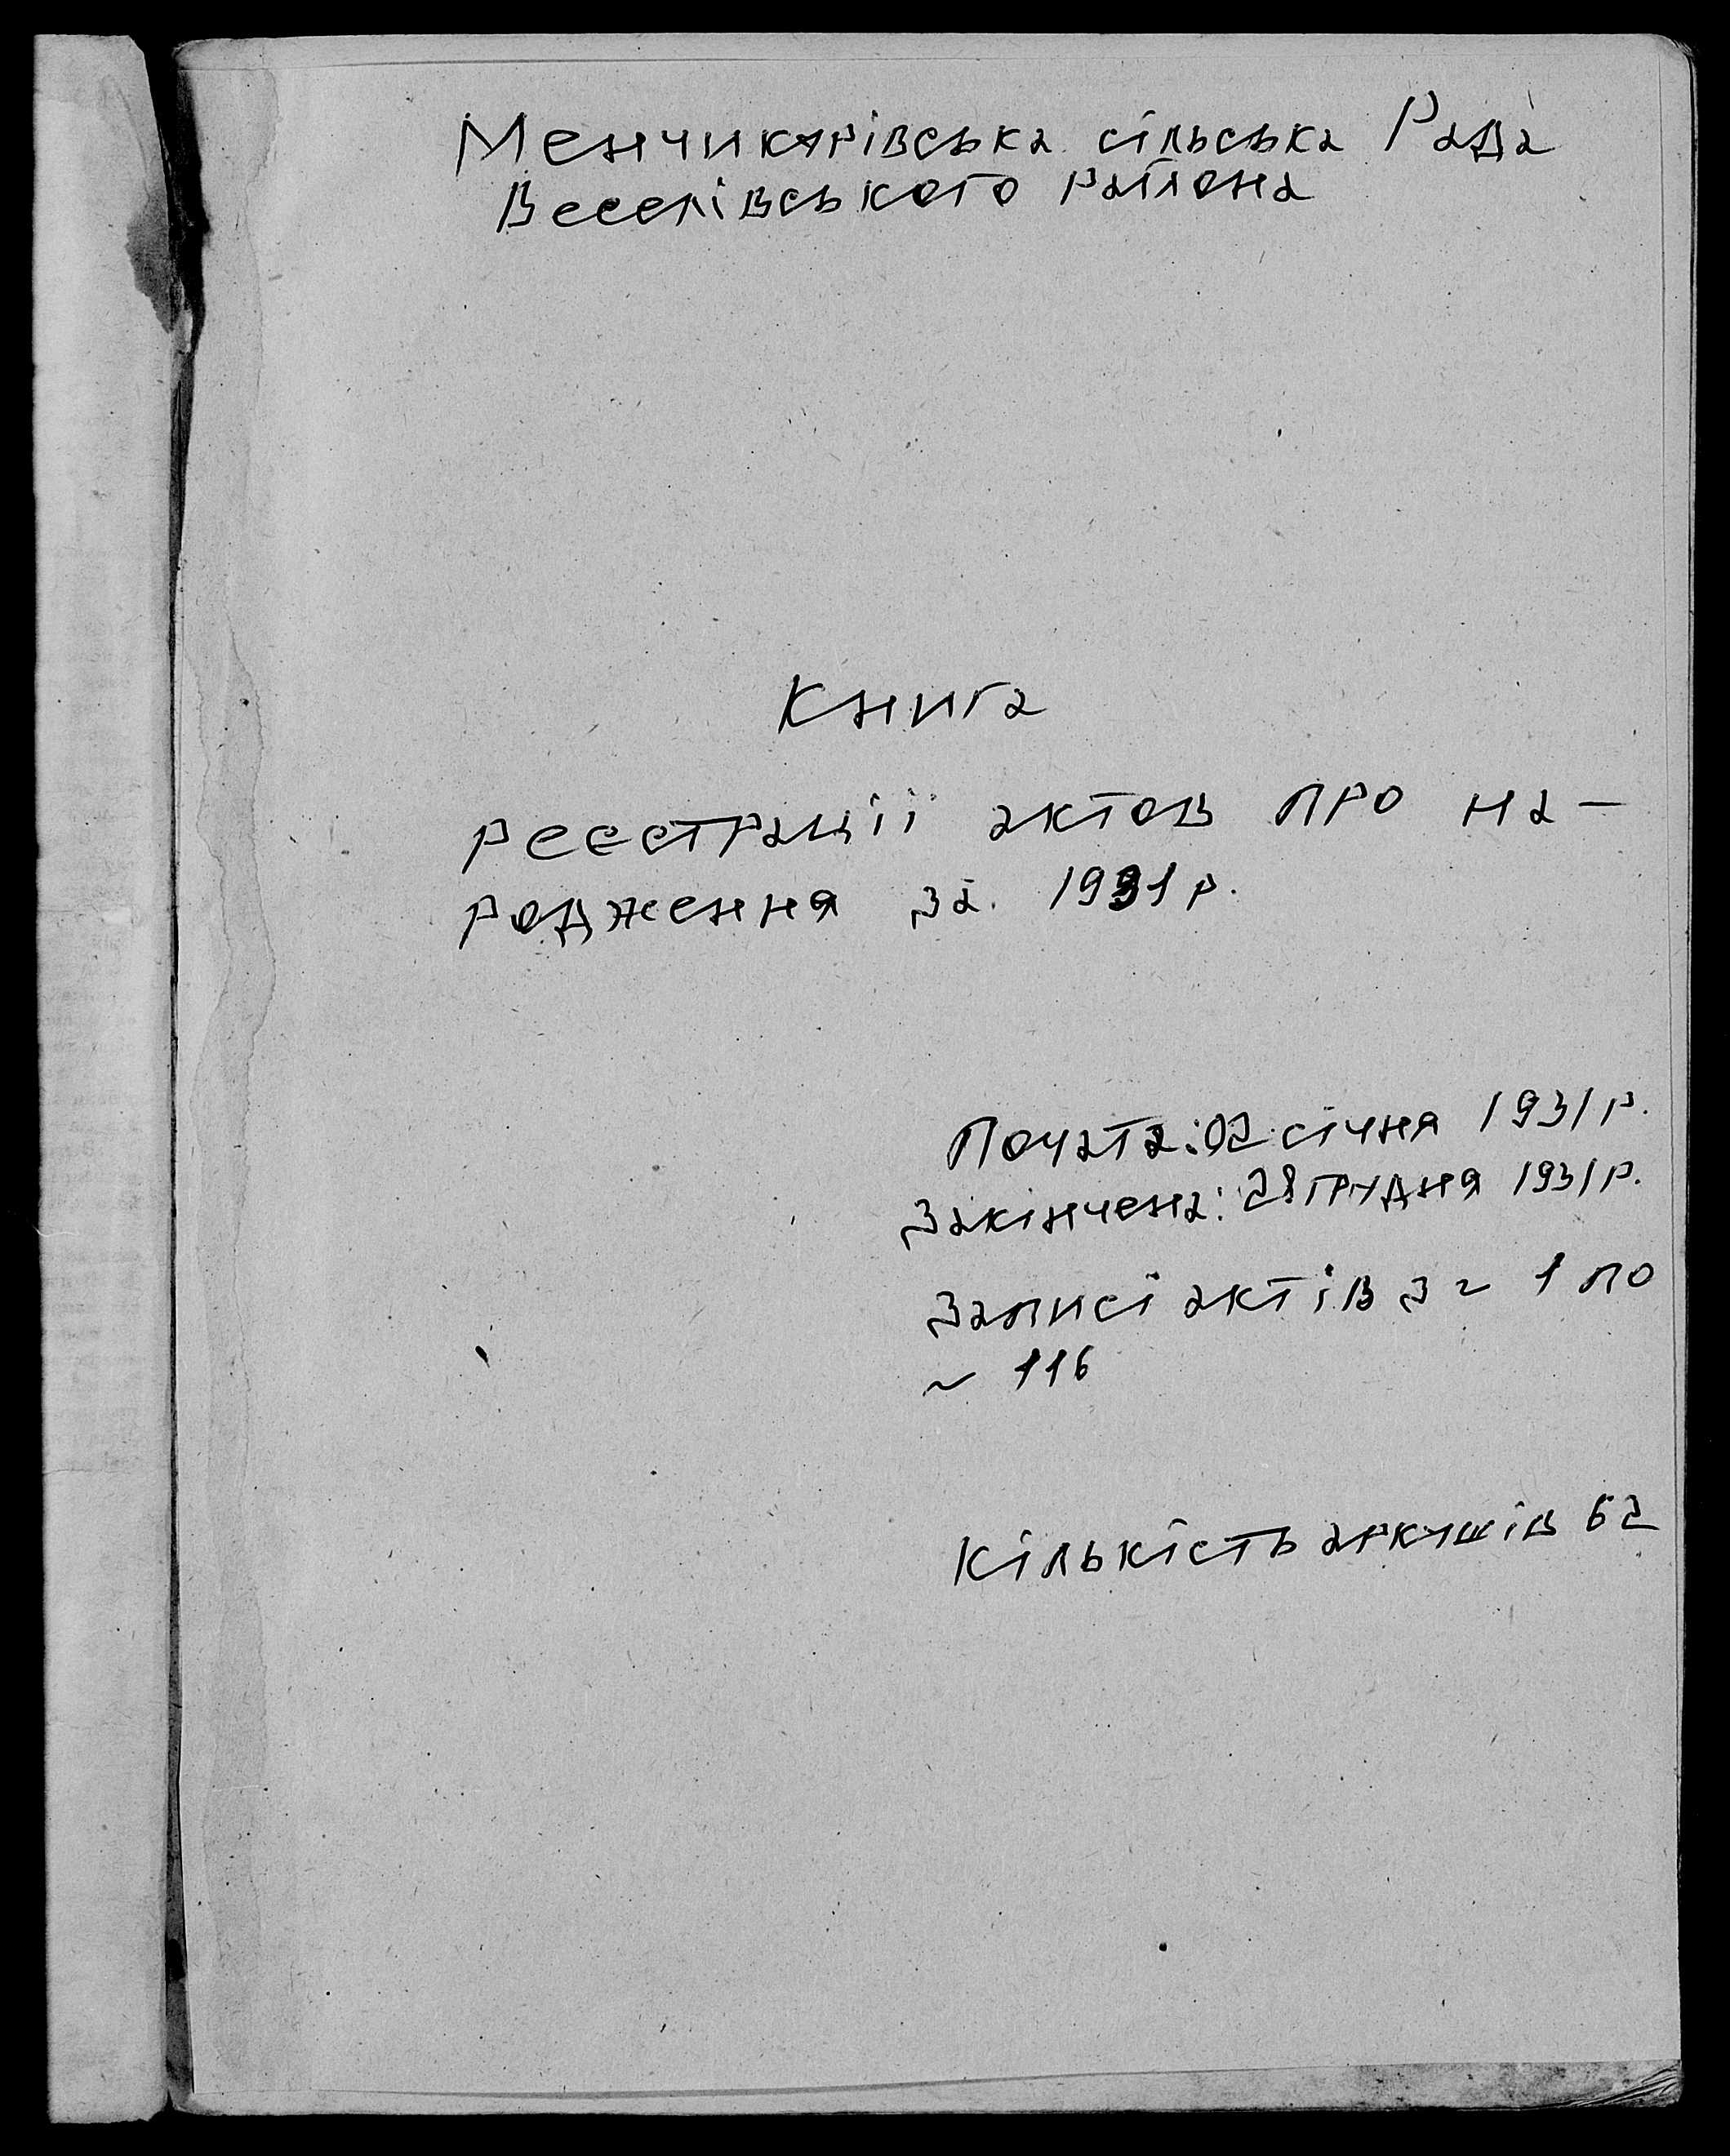 Менчикурівська сільська Рада
Веселівського района
Книга
реєстрації актов про на-
родження за 1931 р.
Почата: 02 січня 1931 р.
Закінчена: 28 грудня 1931 р.
Записі актів з ~ 1 по
~ 116
Кількість аркушів 62